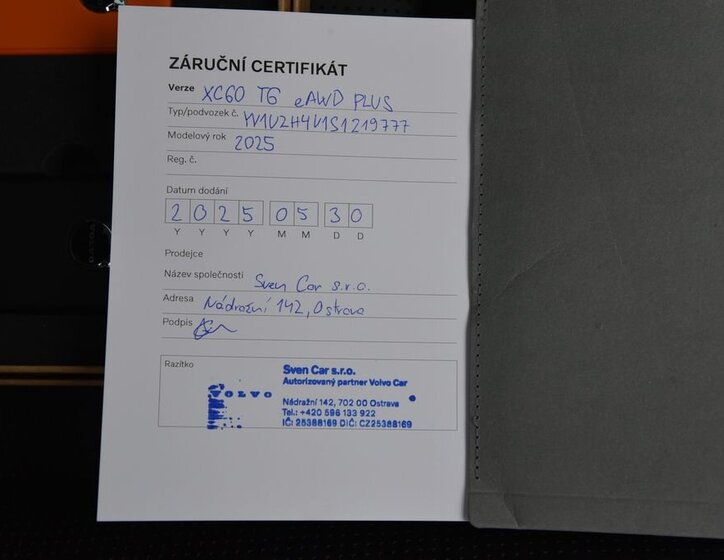 ZÁRUČNÍ CERTIFIKÁT
Verze XC60 T6 eAWD PLUS
Typ/podvozek č. YV1UZH4V1S1219777
Modelový rok 2025
Reg. č.
Datum dodání
2 0 2 5 0 5 3 0
Y Y Y Y M M D D
Prodejce
Název společnosti Sven Car s.r.o.
Adresa Nádražní 142, Ostrava
Podpis
Razítko
Sven Car s.r.o.
Autorizovaný partner Volvo Car
VOLVO
Nádražní 142, 702 00 Ostrava
Tel.: +420 596 133 922
IČ: 25388169 DIČ: CZ25388169